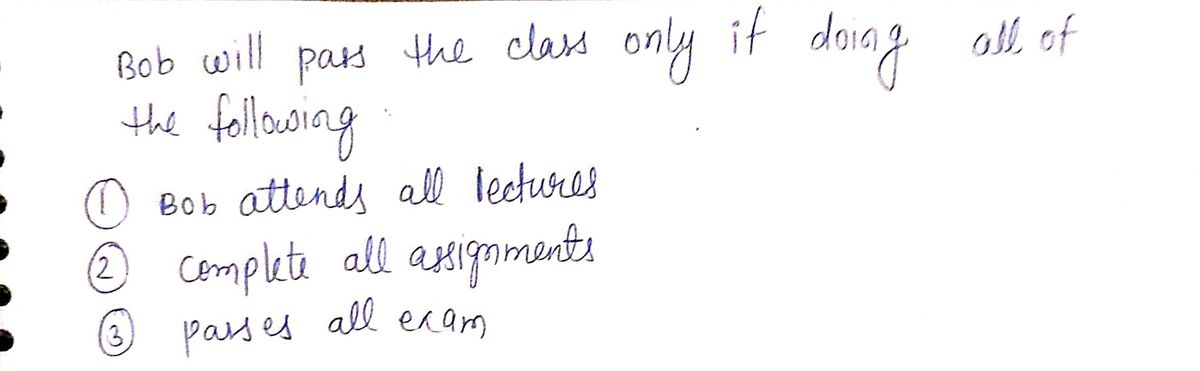 Bob will pass the class only if doing all of
the following
① Bob attends all lectures
② complete all assignments
③ passes all exam